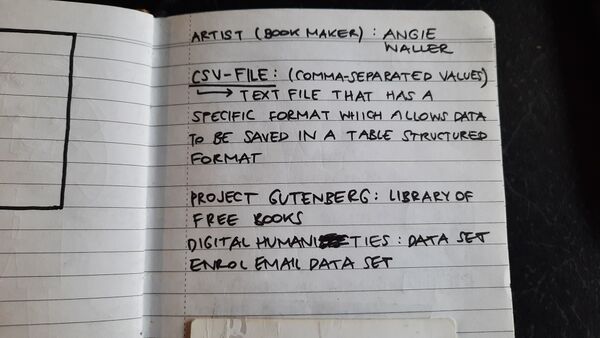 ARTIST (BOOK MAKER) : ANGIE
WALLER
CSV-FILE: (COMMA-SEPARATED VALUES)
→ TEXT FILE THAT HAS A
SPECIFIC FORMAT WHICH ALLOWS DATA
TO BE SAVED IN A TABLE STRUCTURED
FORMAT
PROJECT GUTENBERG: LIBRARY OF
FREE BOOKS
DIGITAL HUMANITIES : DATA SET
ENROL EMAIL DATA SET